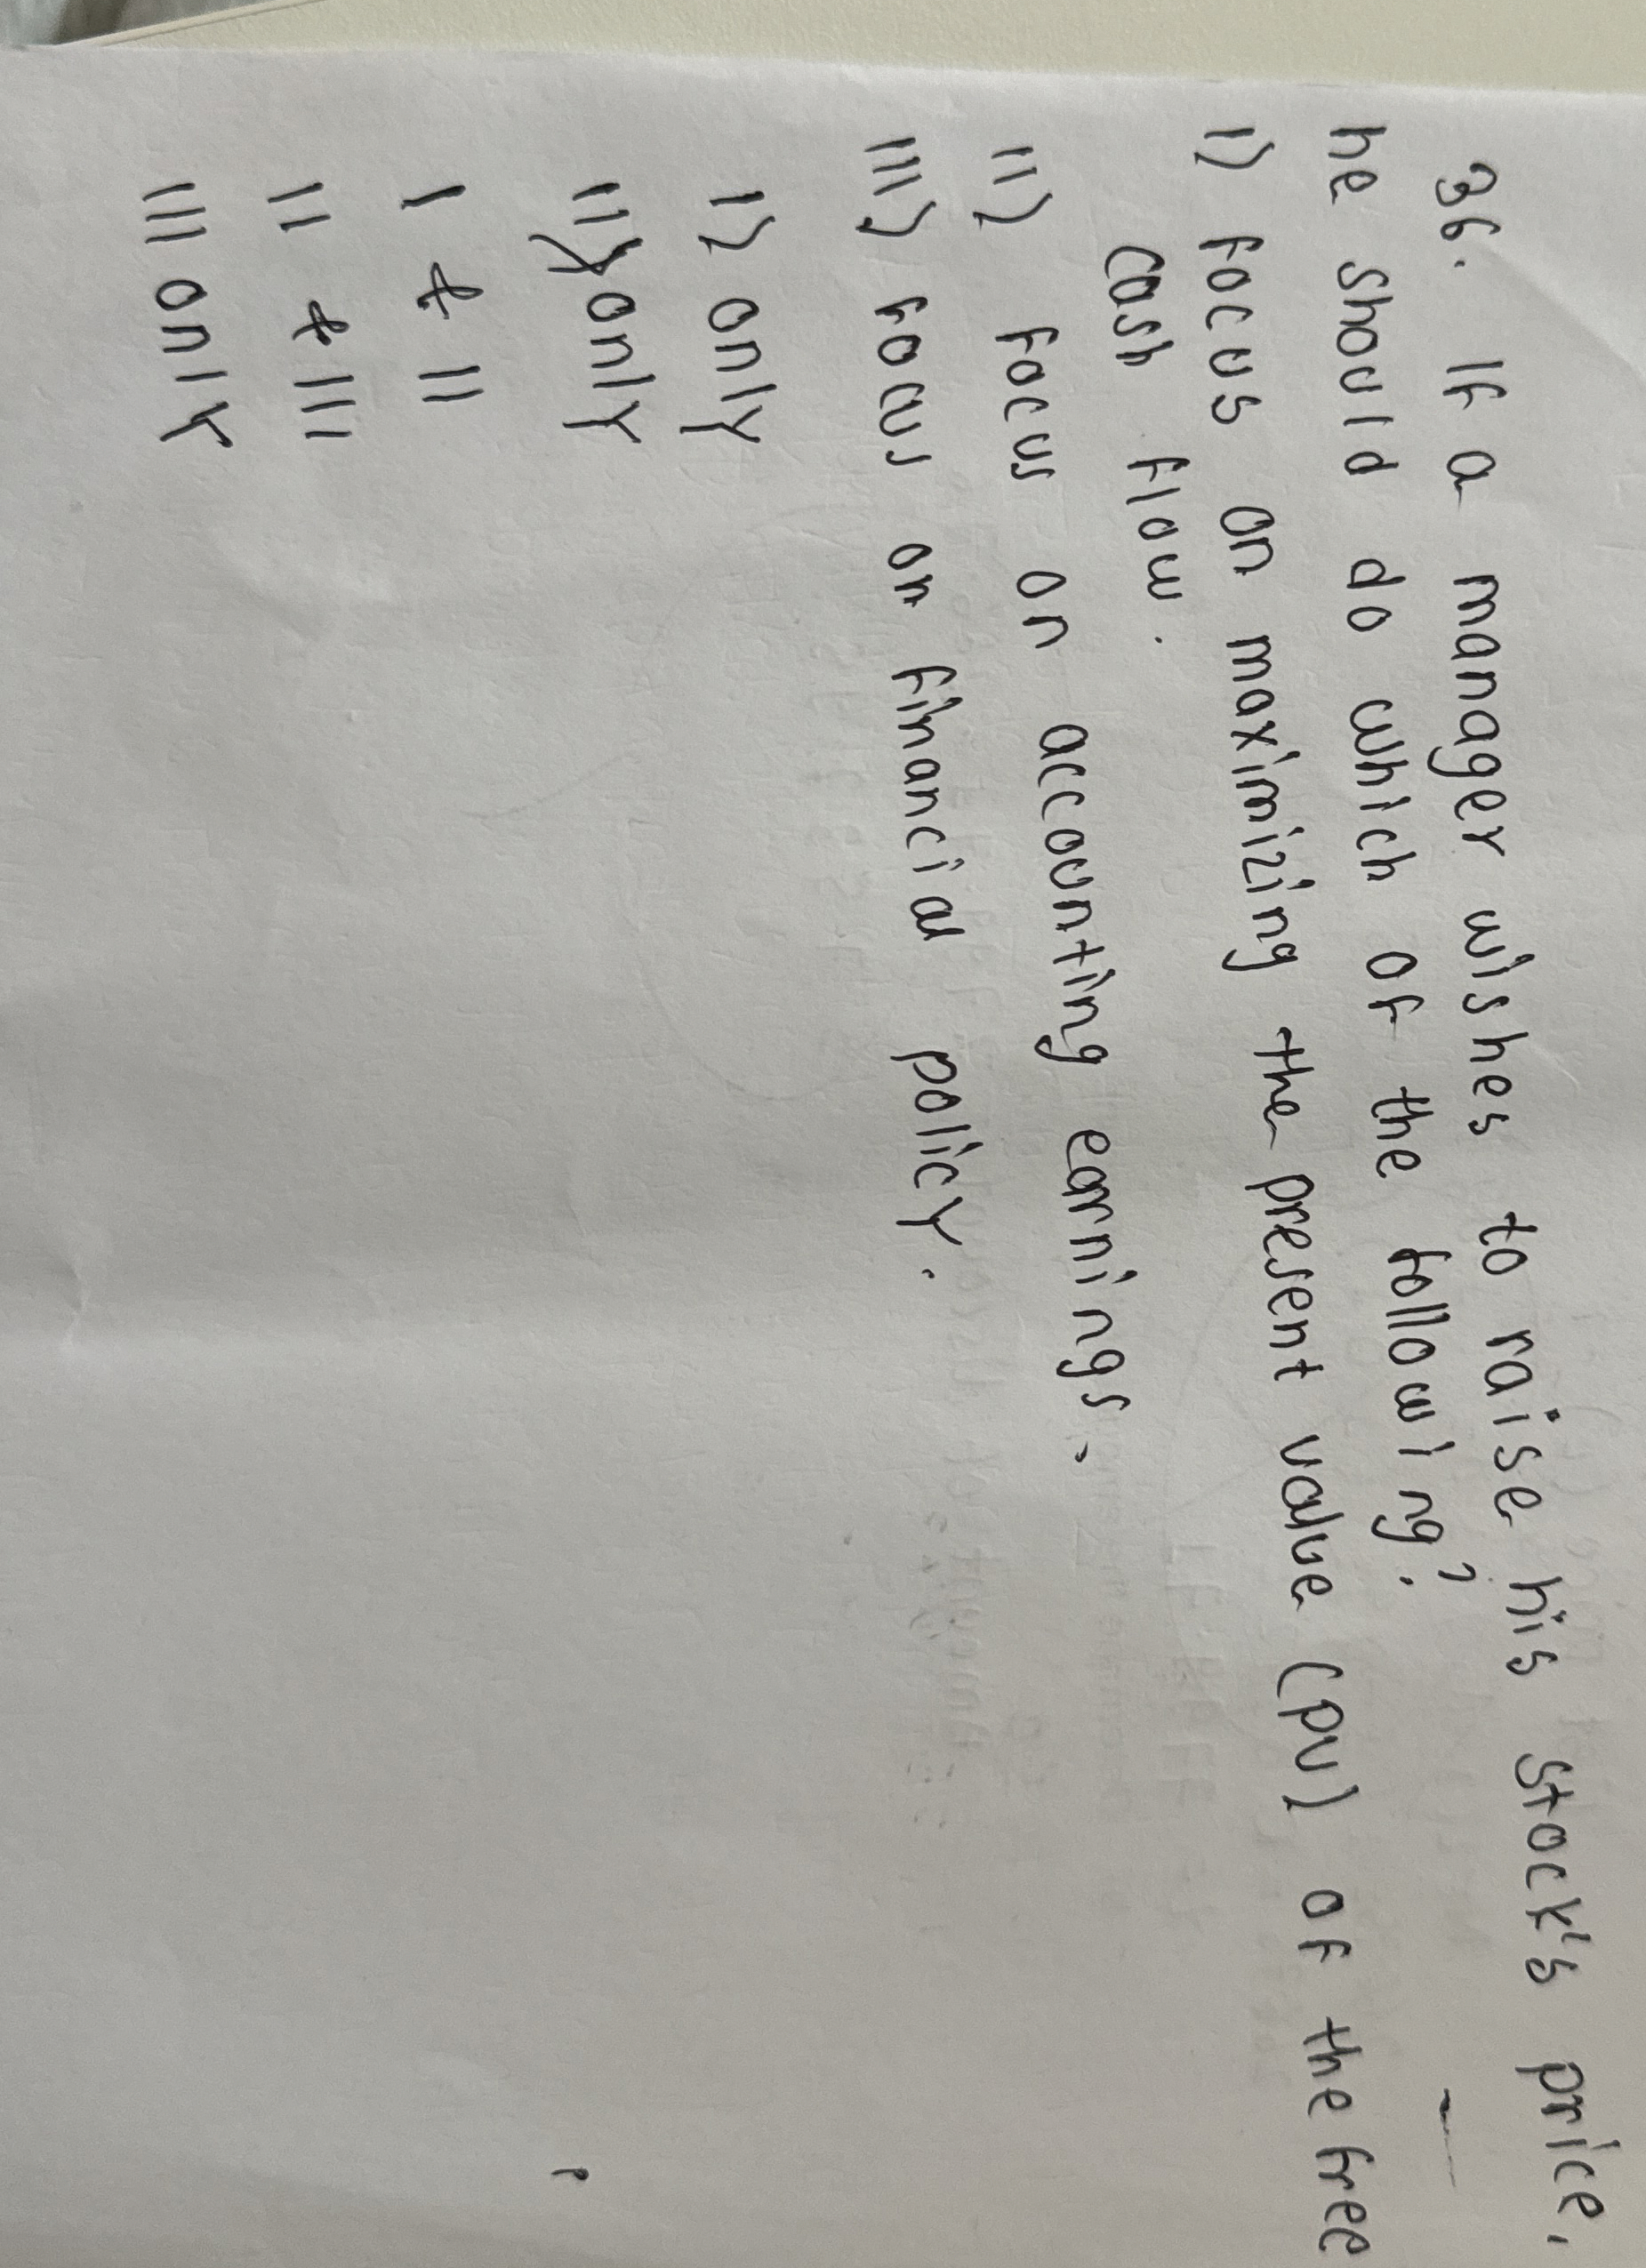 36. If a manager wishes to raise his stock's price,
he should do which of the following?
I) focus on maximizing the present value (PV) of the free
cash flow.
II) focus on accounting earnings.
III) focus on financial policy.
I) only
II) only
I & II
II & III
III only